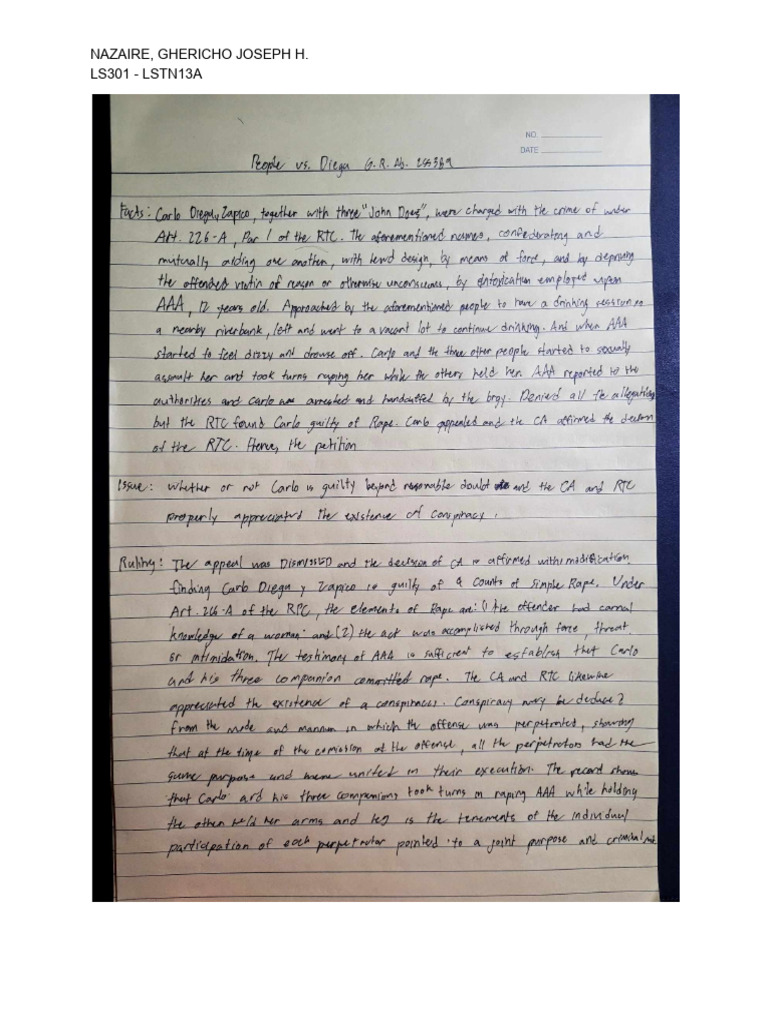 NAZAIRE, GHERICHO JOSEPH H.
LS301 - LSTN13A
NO.
DATE
People vs. Diega G.R. No. 255389
Facts: Carlo Diega y Zapico, together with three "John Does", were charged with the crime of under
Art. 226-A, Par 1 of the RTC. The aforementioned names, confederating and
mutually aiding one another, with lewd design, by means of force, and by depriving
the offended victim of reason or otherwise unconscious, by intoxication employed upon
AAA, 12 years old. Approached by the aforementioned people to have a drinking session on
a nearby riverbank, left and went to a vacant lot to continue drinking. And when AAA
started to feel dizzy and drowse off. Carlo and the three other people started to sexually
assault her and took turns raping her while the others held her. AAA reported to the
authorities and Carlo was arrested and handcuffed by the brgy. Denied all the allegations
but the RTC found Carlo guilty of Rape. Carlo appealed and the CA affirmed the decision
of the RTC. Hence, the petition
Issue: whether or not Carlo is guilty beyond reasonable doubt and the CA and RTC
properly appreciated the existence of conspiracy.
Ruling: The appeal was DISMISSED and the decision of CA is affirmed with modification
finding Carlo Diega y Zapico is guilty of 4 counts of Simple Rape. Under
Art. 266-A of the RPC, the elements of Rape are: (1) the offender had carnal
knowledge of a woman; and (2) the act was accomplished through force, threat
or intimidation. The testimony of AAA is sufficient to establish that Carlo
and his three companion committed rape. The CA and RTC likewise
appreciated the existence of a conspiracy. Conspiracy may be deduced
from the mode and manner in which the offense was perpetrated, showing
that at the time of the comission of the offense, all the perpetrators had the
same purpose and were united in their execution. The record shows
that Carlo and his three companions took turns in raping AAA while holding
the other held her arms and leg is the of the individual
participation of each perpetrator pointed to a joint purpose and criminal